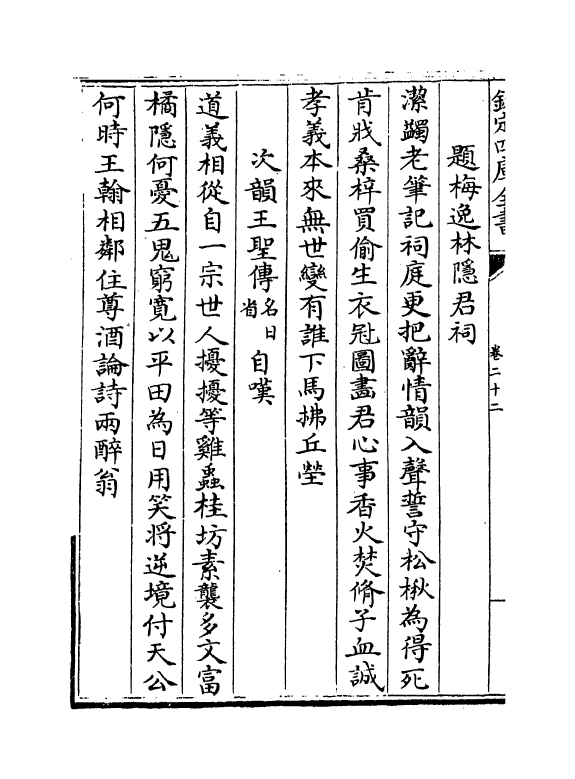 欽定四庫全書
卷二十二
題梅逸林隱君祠
潔蠲老筆記祠庭更把辭情韻入聲誓守松楸為得死
肯戕桑梓買偷生衣冠圖畫君心事香火焚脩子血誠
孝義本來無世變有誰下馬拂丘塋
次韻王聖傳名日省自嘆
道義相從自一宗世人擾擾等雞蟲桂坊素襲多文富
橘隱何憂五鬼窮寛以平田為日用笑將逆境付天公
何時王翰相鄰住尊酒論詩兩醉翁